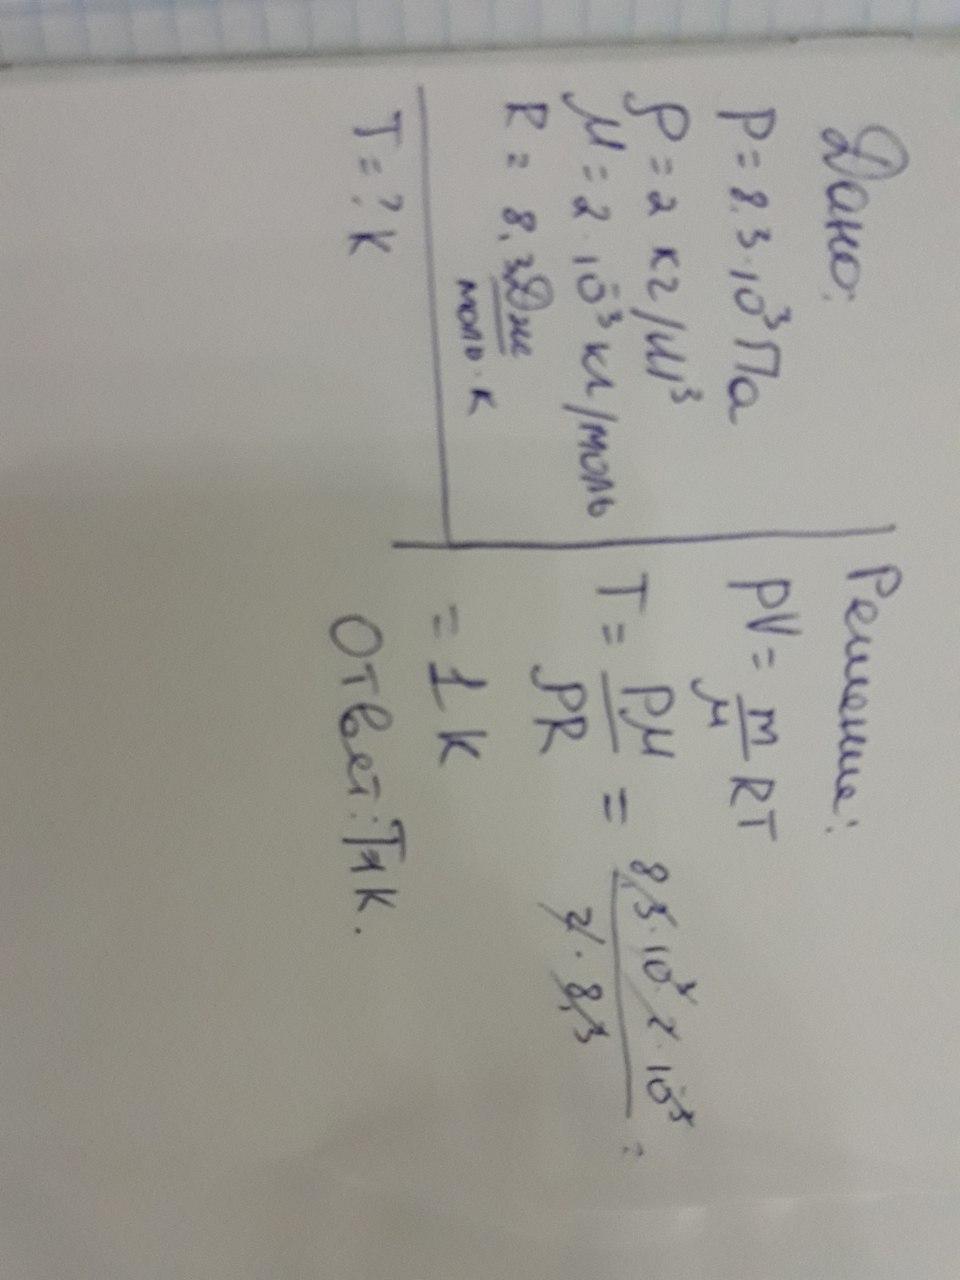 Дано:
P = 8.3·10³ Па
ρ = 2 кг/м³
μ = 2·10⁻³ кг/моль
R = 8,3 Дж/моль·К
T = ? К
Решение:
PV = m/μ RT
T = Pμ/ρR = 8,3·10³·2·10⁻³/2·8,3 =
= 1 К
Ответ: T1К.